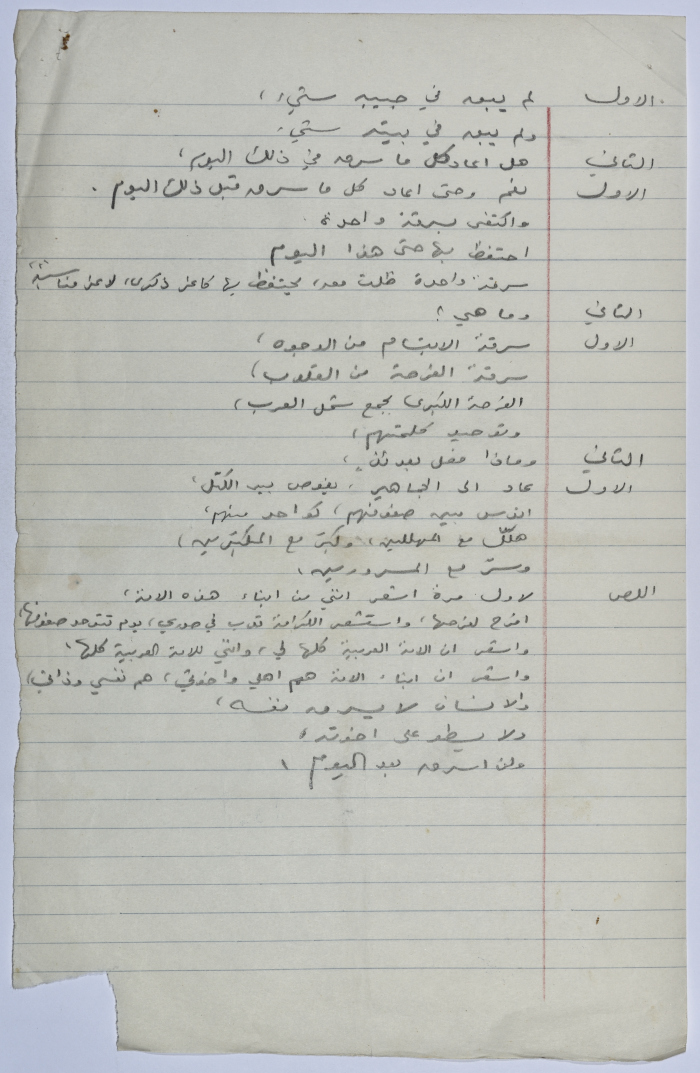 الاول لم يبق في جيبه شيء،
ولم يبق في بيته شيء،
الثاني هل اعاد كل ما سرق في ذلك اليوم؟
الاول نعم وحتى اعاد كل ما سرق قبل ذلك اليوم.
واكتفى بسرقة واحدة
احتفظ بها حتى هذا اليوم
سرقة واحدة ظلت معه، يحتفظ بها كاعز ذكرى، لاعز مناسبة،
الثاني وما هي؟
الاول سرقة الابتسام من الوجوه،
سرقة الفرحة من القلوب،
الفرحة الكبرى بجمع شمل العرب،
وتوحيد كلمتهم،
الثاني وماذا فعل بعدئذ؟
الاول عاد الى الجماهير، يغوص بين الكتل،
اندس بين صفوفهم، كواحد منهم،
هلّل مع المهللين، وكبّر مع المكبّرين،
وسرّ مع المسرورين،
اللص لاول مرة اشعر انني من ابناء هذه الامة،
افرح لفرحها، واستشعر الكرامة تدب في صدري، يوم تتوحد صفوفها،
واشعر ان الامة العربية كلها لي، وانني للامة العربية كلها،
واشعر ان ابناء الامة هم اهلي واخوتي، هم نفسي وذاتي،
والانسان لا يسرق نفسه،
ولا يسطو على اخوته،
ولن اسرق بعد اليوم!